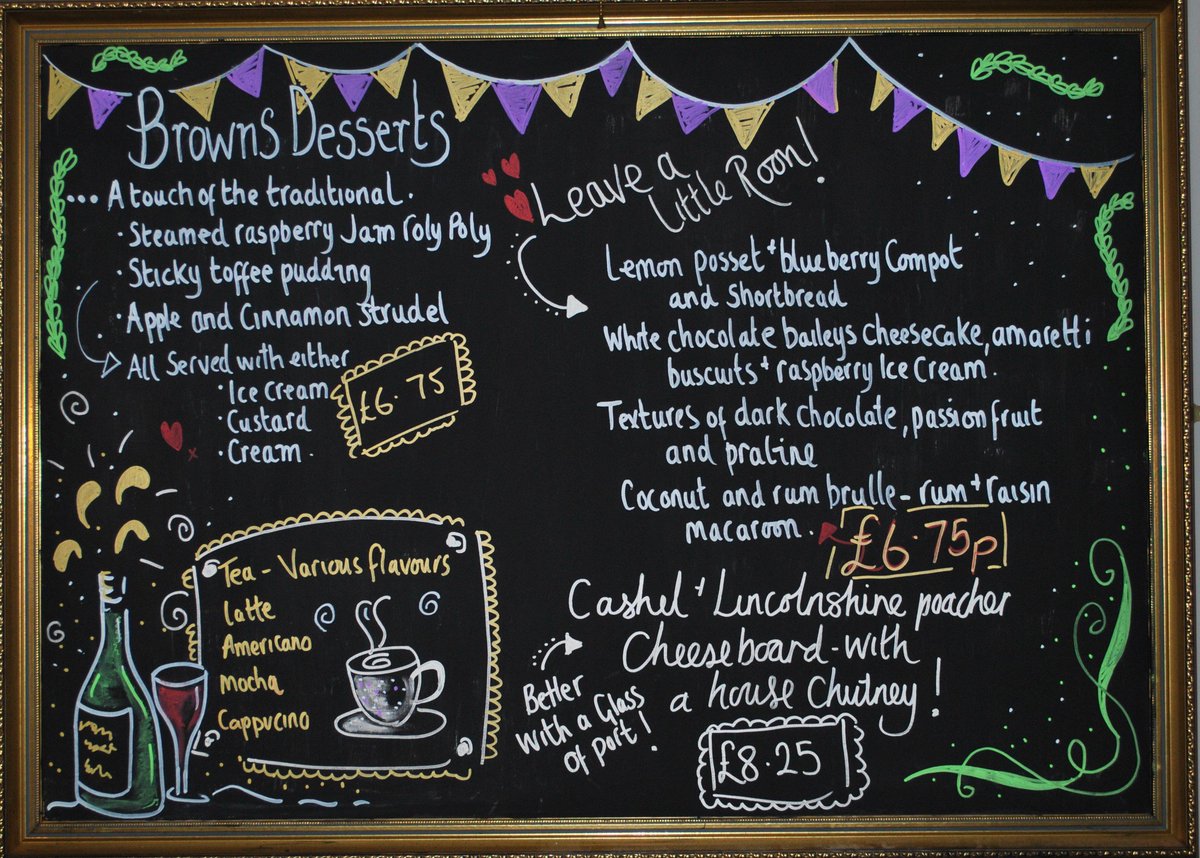 Browns Desserts
... A touch of the traditional.
· Steamed raspberry Jam roly Poly
· Sticky toffee pudding
· Apple and Cinnamon Strudel
All Served with either
· Ice Cream
· Custard
· Cream.
£6.75
Tea - Various flavours
Latte
Americano
Mocha
Cappucino
Leave a
Little Room!
Lemon posset + blueberry Compot
and Shortbread
White chocolate baileys cheesecake, amaretti
buscuits + raspberry Ice Cream.
Textures of dark chocolate, passion fruit
and praline
Coconut and rum brulle - rum + raisin
macaroon.
£6.75p
Cashel + Lincolnshine poacher
Cheeseboard - with
a house Chutney!
Better
with a Glass
of port!
£8.25